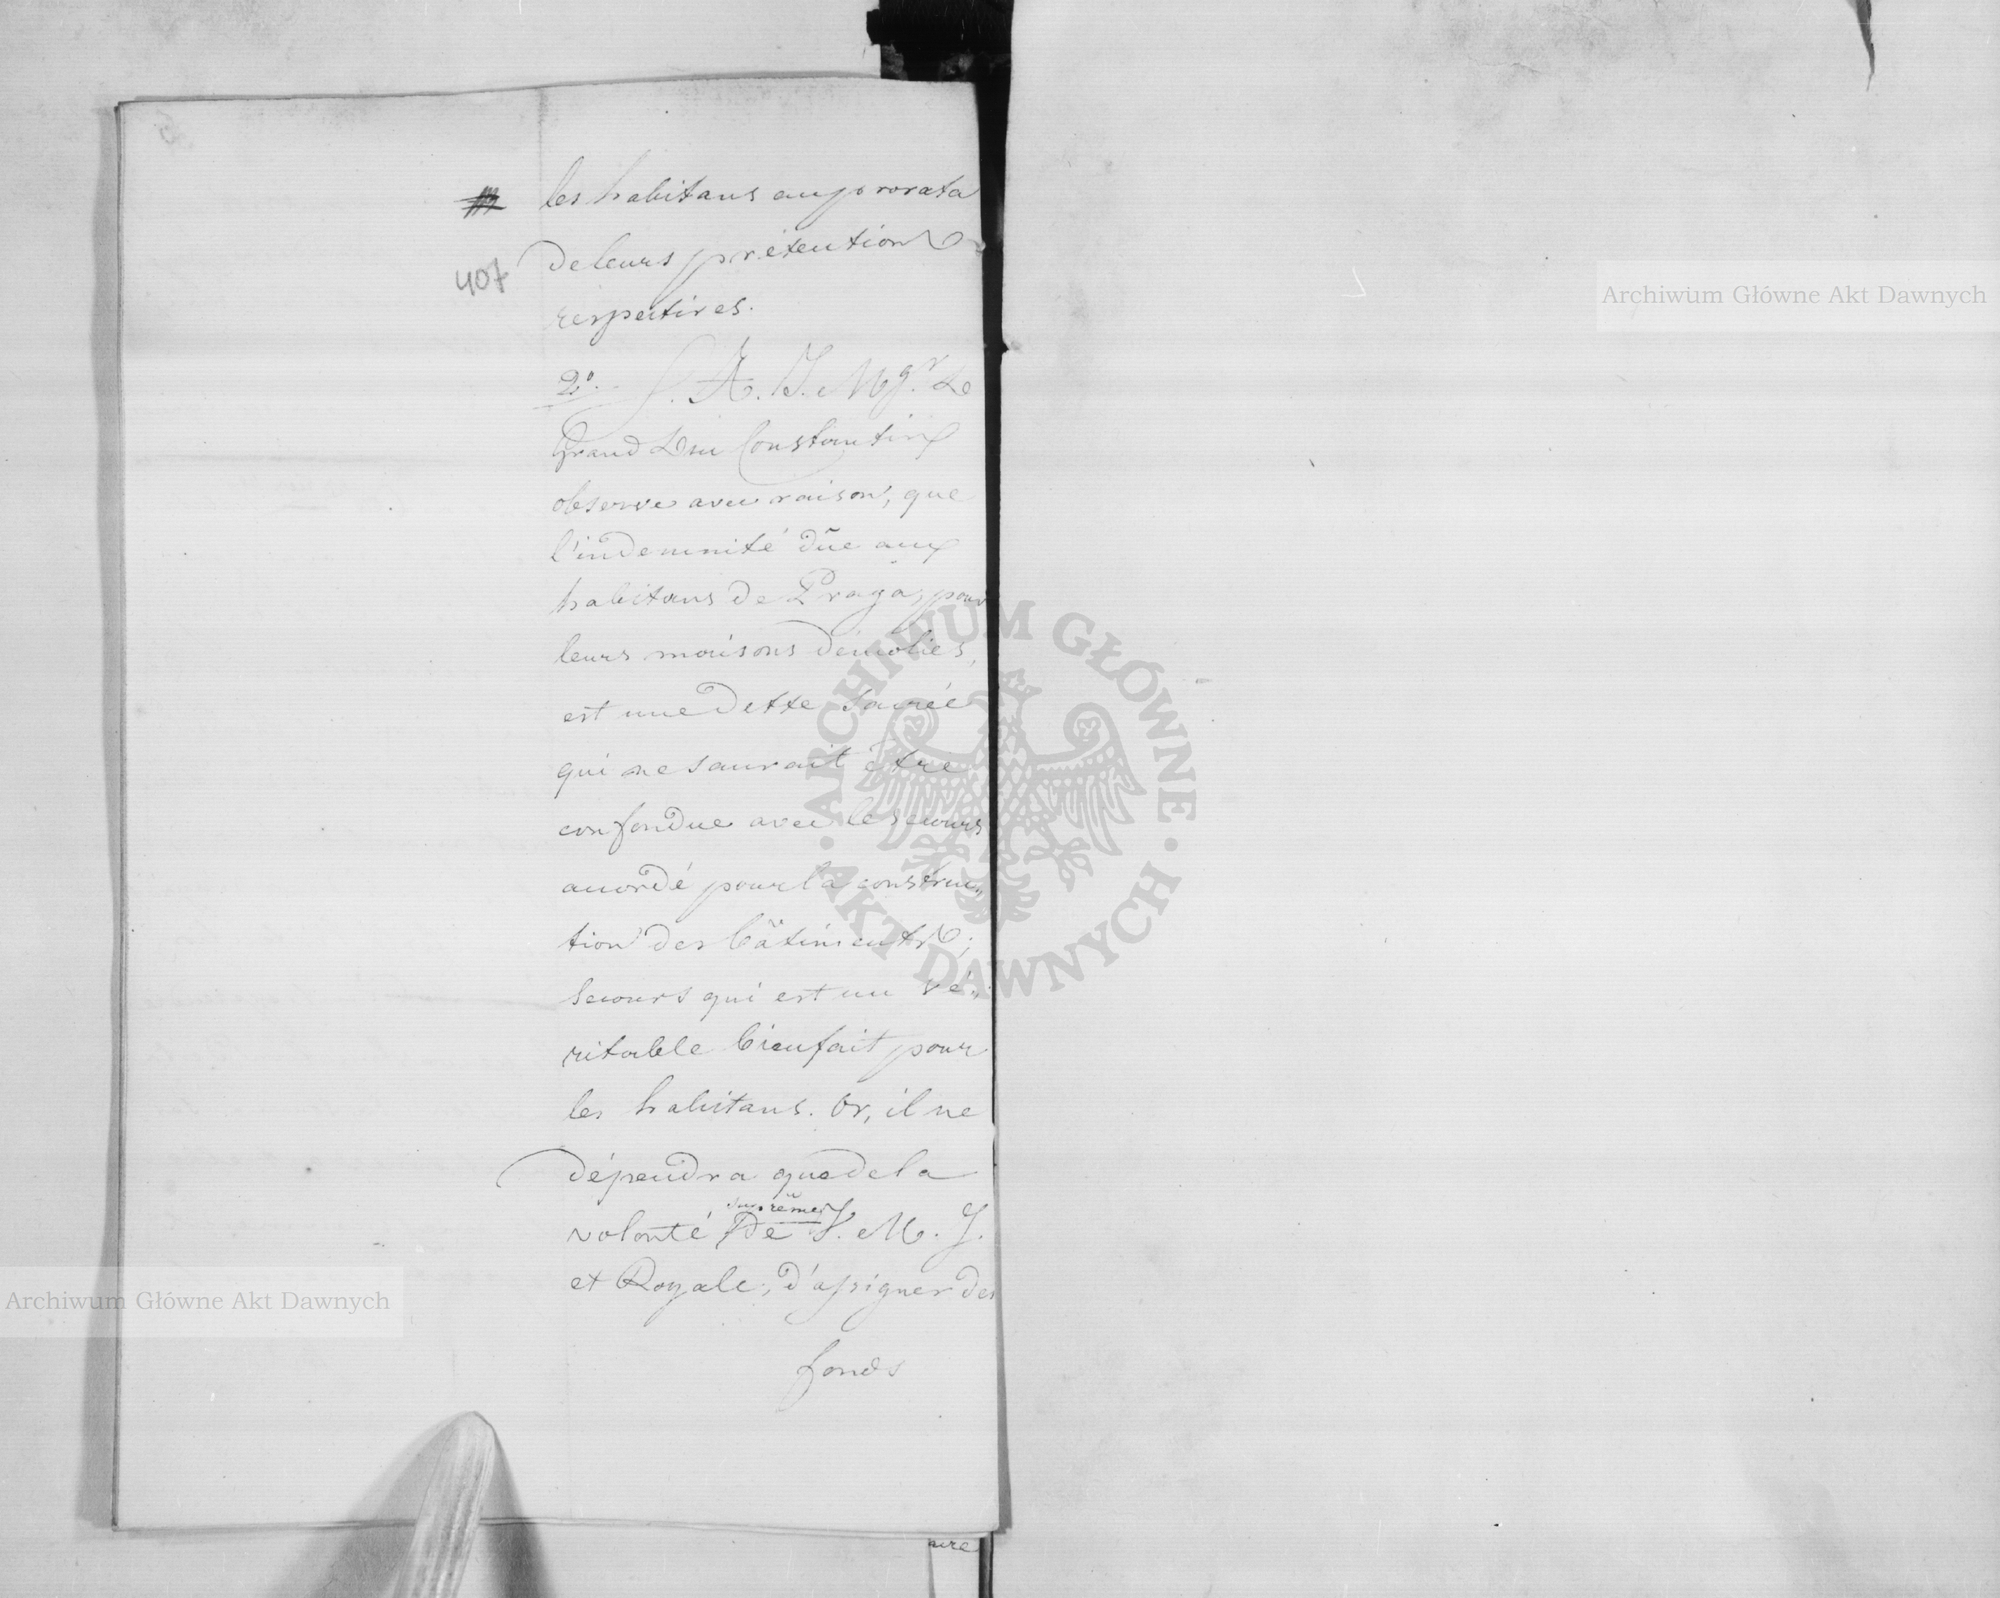 les habitans au prorata
407
de leurs prétentions
respectives.
2º. S. A. I. Mgr. Le
Grand Duc Constantin
observe avec raison, que
l'indemnité dûe aux
habitans de Praga, pour
leurs maisons démolies,
est une dette sacrée
qui ne saurait être
confondue avec le secours
accordé pour la construc„
tion des bâtiments;
secours qui est un vé„
ritable bienfait pour
les habitans. Or, il ne
dépendra que de la
suprême
volonté de S. M. I.
et Royale, d'assigner des
fonds
Archiwum Główne Akt Dawnych
Archiwum Główne Akt Dawnych
· ARCHIWUM GŁÓWNE · AKT DAWNYCH